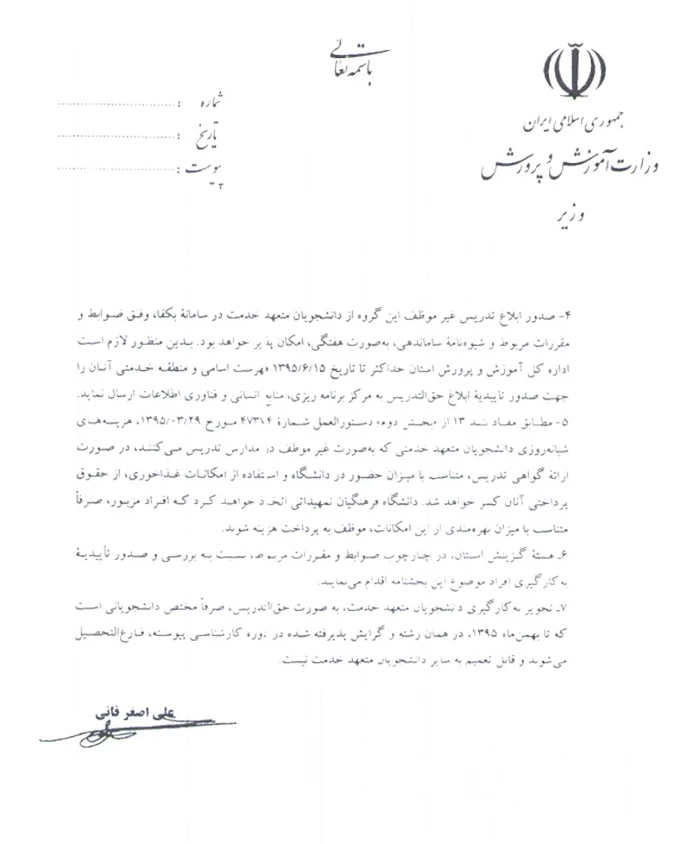 باسمه تعالی
جمهوری اسلامی ایران
وزارت آموزش و پرورش
وزیر
شماره :
تاریخ :
پیوست :
۴- صدور ابلاغ تدریس غیر موظف این گروه از دانشجویان متعهد خدمت در سامانهٔ بکفا، وفق ضوابط و
مقررات مربوط و شیوه‌نامهٔ ساماندهی، به‌صورت هفتگی، امکان پذیر خواهد بود. بدین منظور لازم است
اداره کل آموزش و پرورش استان حداکثر تا تاریخ ۱۳۹۵/۶/۱۵ فهرست اسامی و منطقه خدمتی آنان را
جهت صدور تاییدیهٔ ابلاغ حق‌التدریس به مرکز برنامه ریزی، منابع انسانی و فناوری اطلاعات ارسال نماید.
۵- مطابق مفاد بند ۱۳ از «بخش دوم» دستورالعمل شمارهٔ ۴۷۳۱۴ مورخ ۱۳۹۵/۰۳/۲۹، هزینه‌های
شبانه‌روزی دانشجویان متعهد خدمتی که به‌صورت غیر موظف در مدارس تدریس می‌کنند، در صورت
ارائهٔ گواهی تدریس، متناسب با میزان حضور در دانشگاه و استفاده از امکانات غذاخوری، از حقوق
پرداختی آنان کسر خواهد شد. دانشگاه فرهنگیان تمهیداتی اتخاذ خواهد کرد که افراد مزبور، صرفاً
متناسب با میزان بهره‌مندی از این امکانات، موظف به پرداخت هزینه شوند.
۶- هستهٔ گزینش استان، در چارچوب ضوابط و مقررات مربوط، نسبت به بررسی و صدور تأییدیهٔ
به‌کارگیری افراد موضوع این بخشنامه اقدام می‌نمایند.
۷- تجویز به‌کارگیری دانشجویان متعهد خدمت، به صورت حق‌التدریس، صرفاً مختص دانشجویانی است
که تا بهمن‌ماه ۱۳۹۵، در همان رشته و گرایش پذیرفته شده در دوره کارشناسی پیوسته، فارغ‌التحصیل
می‌شوند و قابل تعمیم به سایر دانشجویان متعهد خدمت نیست.
علی اصغر فانی